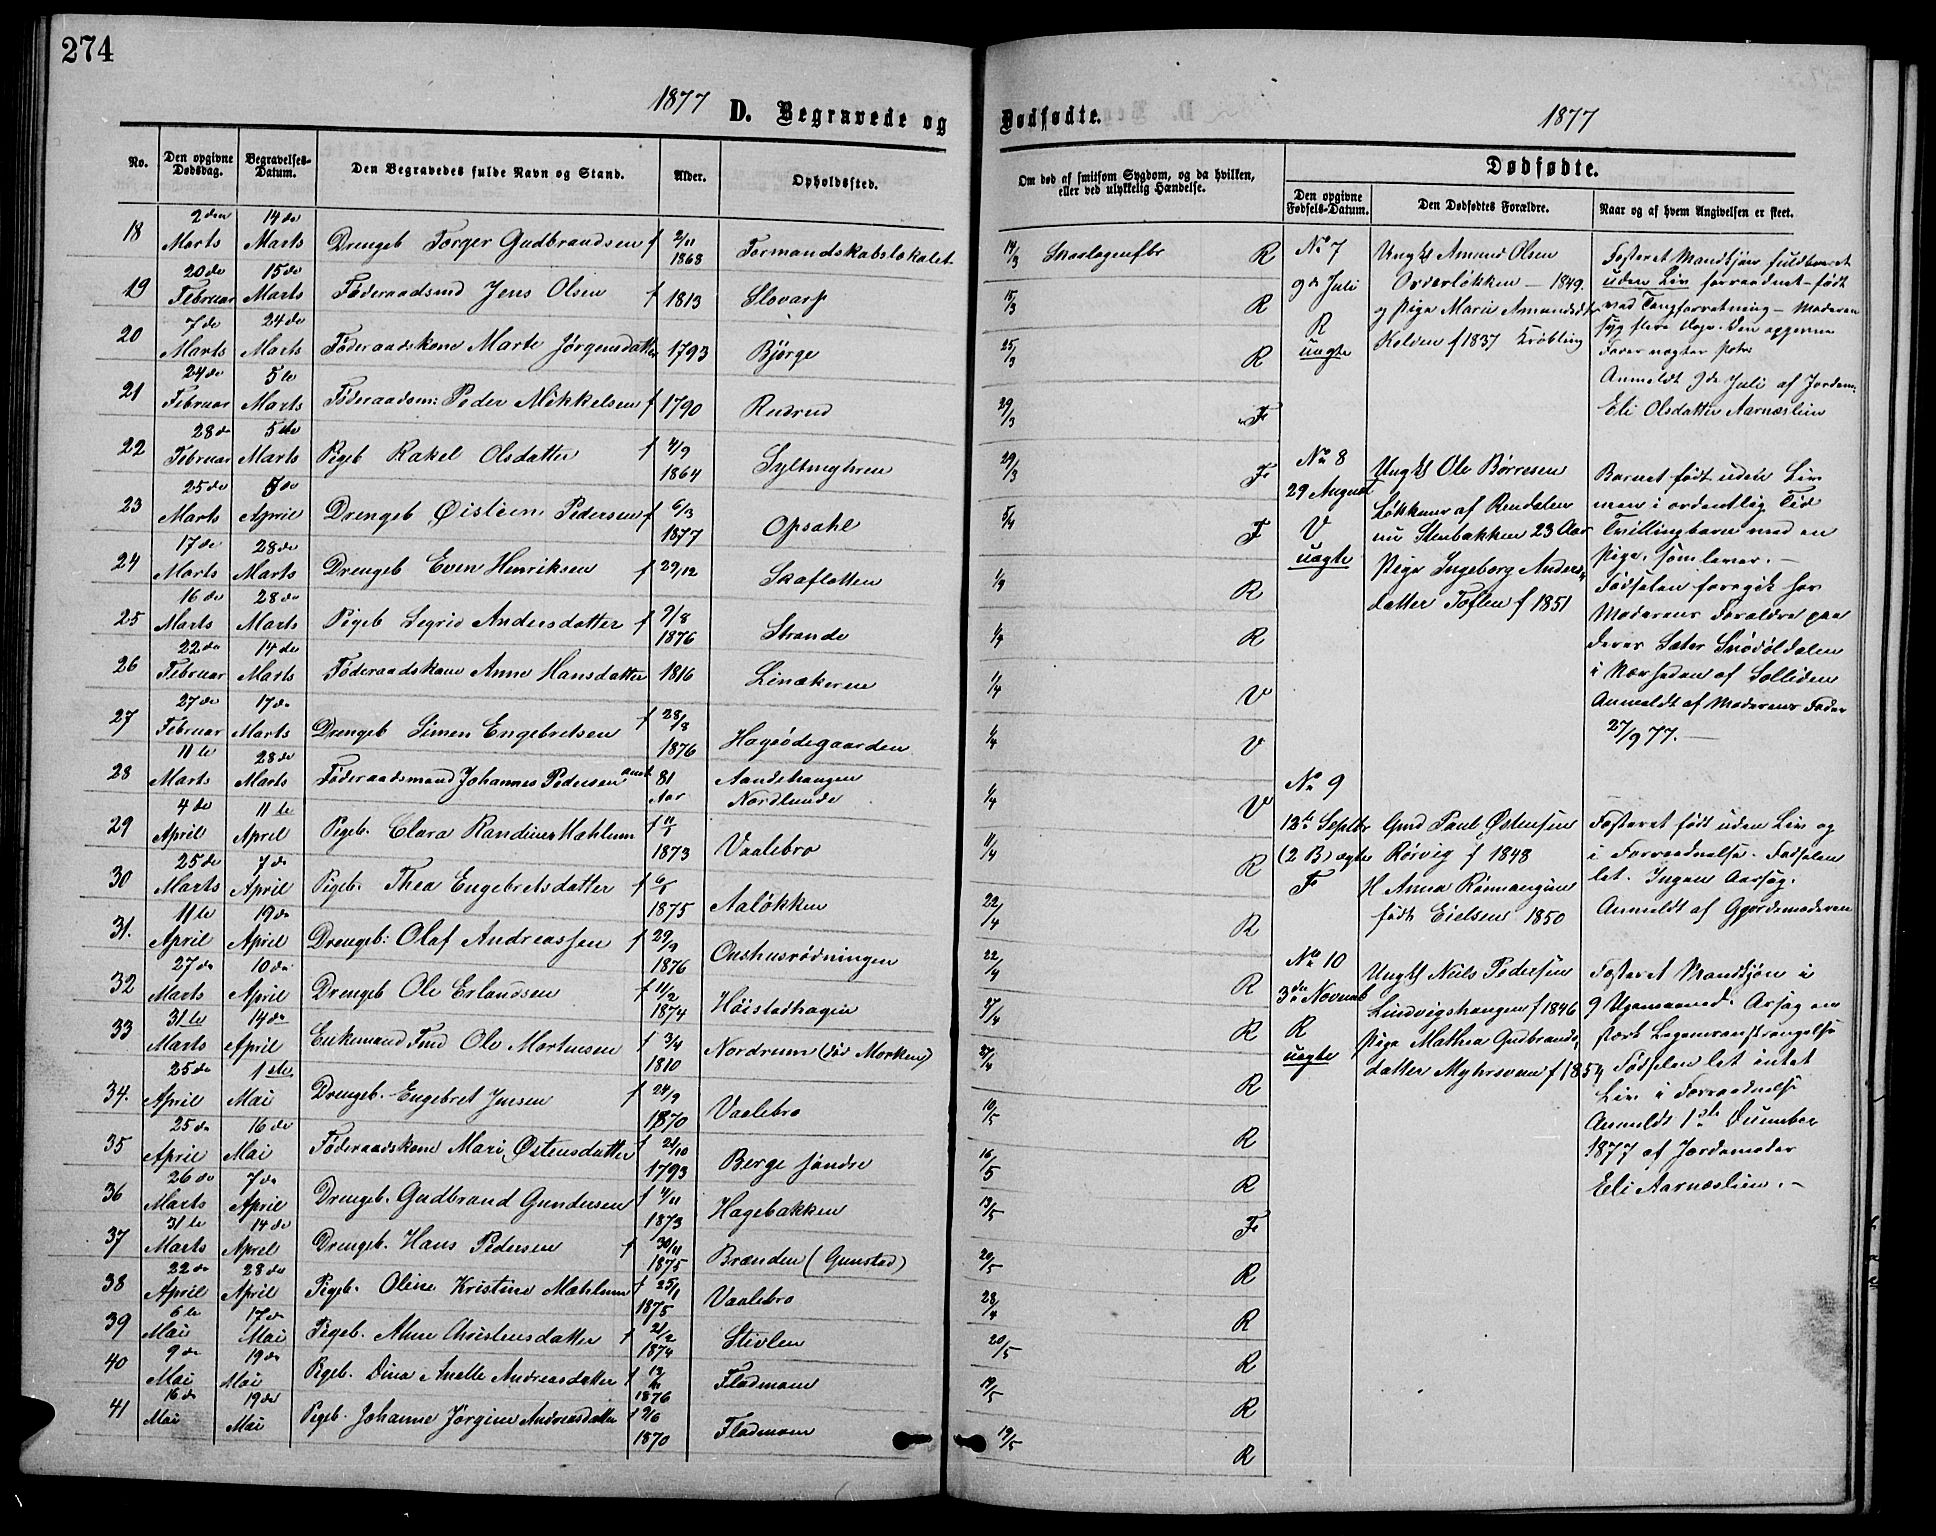 274
1877
D. Begravede og
No.
Den opgivne Dødsdag.
Begravelses-Datum.
Den Begravedes fulde Navn og Stand.
Alder.
Opholdssted.
18 2den Marts 14de Marts Drengeb Torger Gudbrandsen f 2/11 1868 Formandskabslokalet
19 20de Februar 15de Marts Føderaadsmd Jens Olsen f 1813 Slovarp
20 7de Marts 24de Marts Føderaadskone Marte Jørgensdatter 1793 Bjørge
21 24de Februar 5te Marts Føderaadsm: Peder Mikkelsen f 1790 Rudrud
22 28de Februar 5te Marts Pigeb Rakel Olsdatter f 4/9 1864 Syltmyhren
23 25de Marts 5de April Drengeb Øistein Pedersen f 6/3 1877 Opsahl
24 17de Marts 28de Marts Drengeb Even Henriksen f 29/12 Skaflotten
25 16de Marts 28de Marts Pigeb Sigrid Andersdatter f 9/8 1876 Strande
26 22de Februar 14de Marts Føderaadskone Anne Hansdatter 1816 Linækeren
27 27de Februar 17de Marts Drengeb Simen Engebretsen f 28/8 1876 Hagsødegaarden
28 11te Marts 28de Marts Føderaadsmand Johannes Pedersen 81 Aar Aandehaugen Nordlunde
29 4de April 11te April Pigeb. Clara Randine Mæhlum f 1873 Vaalebro
30 25de Marts 7de April Pigeb. Thea Engebretsdatter f 1875 Aaløkken
31. 11te April 19de April Drengeb: Olaf Andreassen f 29/9 1876 Onshusrødningen
32 27de Marts 10de April Drengeb Ole Erlandsen f 11/2 1874 Høistadhagen
33 31te Marts 14de April Enkemand Ole Mortensen f 3/4 1810 Nordrum (død Morken)
34. 25de April 1ste Mai Drengeb. Engebret Jensen f 24/9 1870 Vaalebro
35 25de April 16de Mai Føderaadskone Mari Østensdatter f 21/10 1793 Berge søndre
36 26de Marts 7de April Drengeb. Gudbrand Gundersen f 4/11 1873 Hagebakken
37 31te Marts 14de April Drengeb. Hans Pedersen f 30/11 1875 Brænden (Gunstad)
38 22de April 28de April Pigeb. Oline Kristine Mæhlum f 25/1 1875 Vaalebro
39 6te Mai 17de Mai Pigeb. Christensdatter f 21/2 1874 Stivlen
40 9de Mai 19de Mai Pigeb. Dina Anette Andreasdatter f 1876 Fladmoen
41 16de Mai 19de Mai Pigeb. Johanne Jørgine Andreasdatter f 2/6 1870 Fladmoen
Dødfødte.
1877
Om død af smitsom Sygdom, og da hvilken,
eller ved ulykkelig Hændelse.
Dødfødte.
Den opgivne Fødsels-Datum.
Den Dødfødtes Forældre.
Naar og af hvem Angivelsen er skeet.
14/3 Skarlagensfbr R
15/3 R
25/3 R
29/3 F
29/3 F
5/4 F
1/4 R
1/4 R
1/4 V
1/4 V
1/4 V
11/4 R
22/4 R
22/4 R
27/4 R
27/4 R
10/5 R
16/5 R
13/5 F
20/5 R
28/4 R
20/5 R
19/5 R
19/5 R
No 7
9de Juli
R
uægte
Ungk Amund Olsen
Orderløkken - 1849.
og Pige Marie Amundsdtr
Kolden f 1837 Krøbling
Fosteret Mandkjøn fuldbaaret
uden Liv forraadnet - født
ved Tangforretning - Moderen
syg flere Dage. Den opgivne
Fader nægter
Anmeldt 9de Juli af Jordem.
Eli Olsdatter Aarnæslien
No 8
29 August
V
uægte
Ungk Ole Børresen
Løkken af Rendalen
nu Stenbakken 23 Aar
Pige Ingeborg Anders
datter Toflen f 1851
Barnet født uden Liv
men i ordentlig Tid
Tvillingbarn med en
Pige, som lever. -
Fødselen foregik hos
Moderens Forældre paa
deres Sæter Snødøldalen
i Nærheden af Solliden
Anmeldt af Moderens Fader
27/9 77. -
No 9
12te Septbr
(2 B) ægte
F
Gmd Paul Østensen
Rørvig f 1848
H Anna
født Eielsen 1850
Fosteret født uden Liv og
i Forraadnelse. Fødselen
let. Ingen Aarsag.
Anmeldt af Gjordemoderen
No 10
3de Novemb
R
uægte
Ungk Niels Pedersen
Lindvigshaugen f 1846
Pige Mathea Gudbrands
datter Myhrsveen f 1854
Fosteret Mandkjøn i
9 Ugemaaned. Aarsag en
stærk Legemsanstrengelse
Fødselen let intet
Liv i Forraadnelse
Anmeldt 1ste December
1877 af Jordemoder
Eli Aarnæslien. -